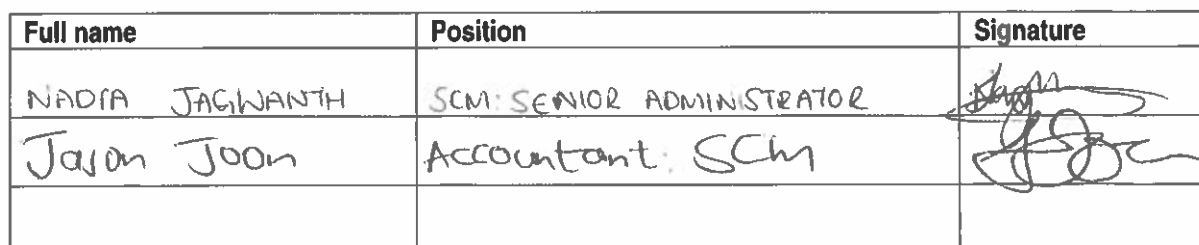 Full name Position Signature
NADIA JAGWANTH SCM: SENIOR ADMINISTRATOR
Jason Joon Accountant: SCM